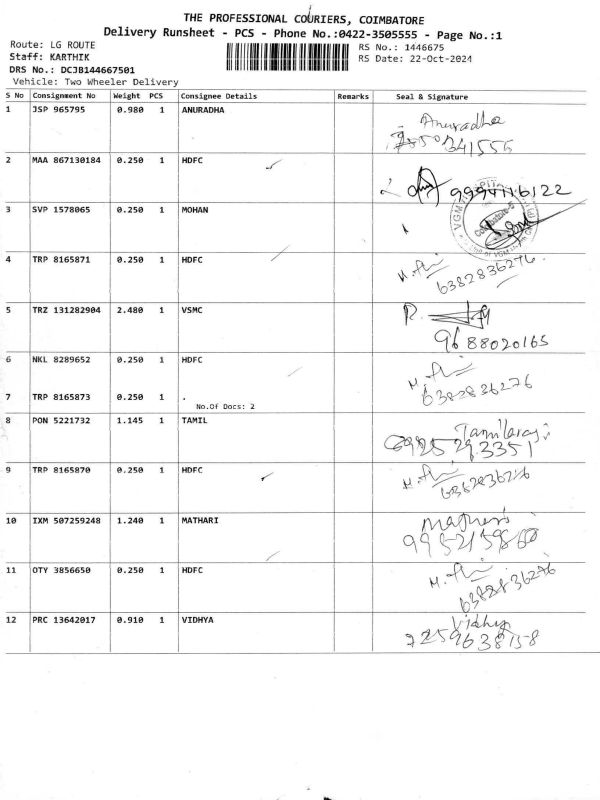 THE PROFESSIONAL COURIERS, COIMBATORE
Delivery Runsheet - PCS - Phone No.:0422-3505555 - Page No.:1
Route: LG ROUTE
Staff: KARTHIK
DRS No.: DCJB144667501
Vehicle: Two Wheeler Delivery
RS No.: 1446675
RS Date: 22-Oct-2024
S No Consignment No Weight PCS Consignee Details Remarks Seal & Signature
1 JSP 965795 0.980 1 ANURADHA Anuradha
341555
2 MAA 867130184 0.250 1 HDFC
9994116122
3 SVP 1578065 0.250 1 MOHAN
VGM Coimbatore-5
4 TRP 8165871 0.250 1 HDFC
6382836276
5 TRZ 131282904 2.480 1 VSMC
9688020165
6 NKL 8289652 0.250 1 HDFC
6382836276
7 TRP 8165873 0.250 1 .
No.Of Docs: 2
8 PON 5221732 1.145 1 TAMIL
9 TRP 8165870 0.250 1 HDFC
10 IXM 507259248 1.240 1 MATHARI
11 OTY 3856650 0.250 1 HDFC
6382836276
12 PRC 13642017 0.910 1 VIDHYA Vidhya
7259638158